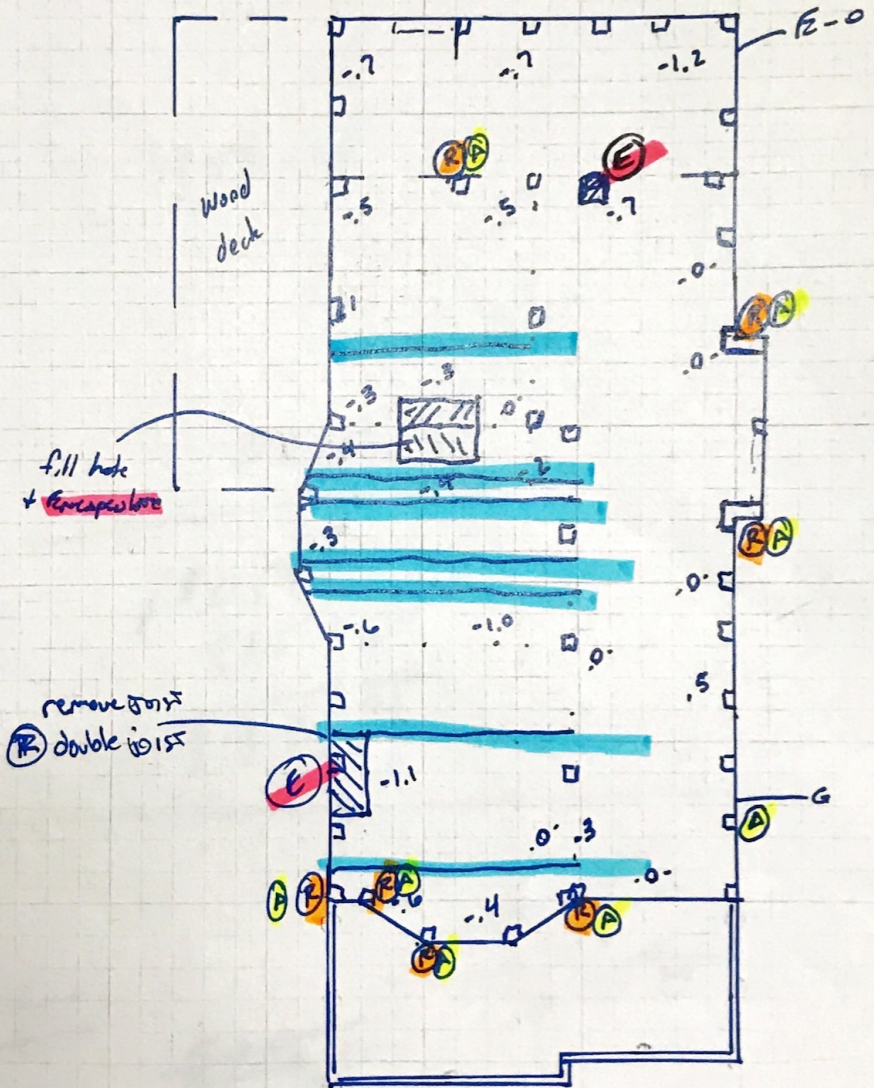 FE-O
-.7 -.7 -1.2
R A E
wood
deck
-.5 -.5 -.7
.0
.1
R A
.0
-.3
-.3 .0
-.4
fill hole
+ Encapsulate
-.3
R A
.0
-.6 -1.0
.0
.5
remove joist
R double joist
E -1.1
G
A
.0 .3
.0
A R R A
-.6 -.4
R A
R A